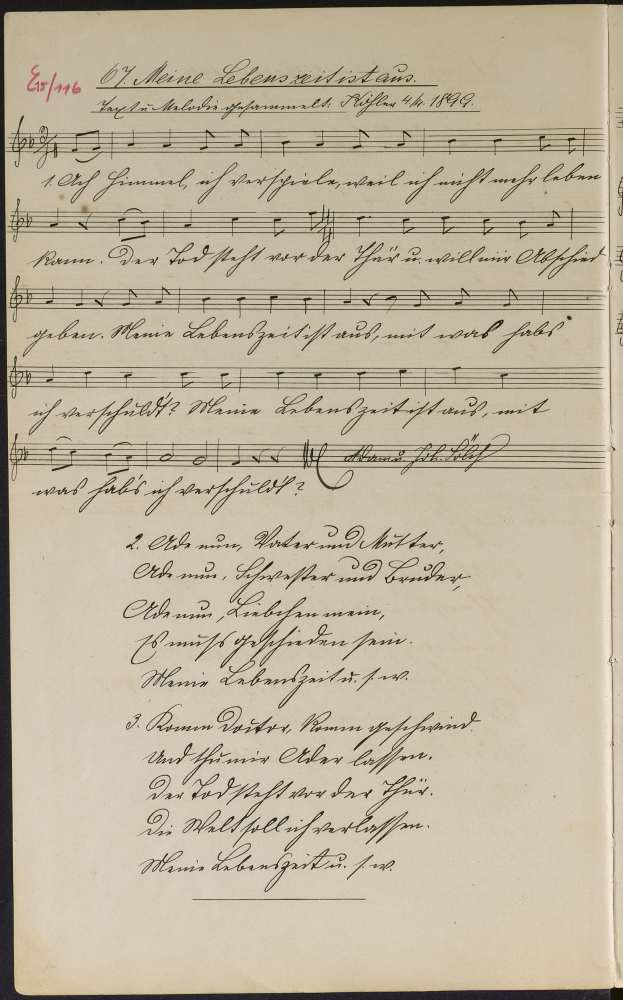 E15/116
67. Meine Lebenszeit ist aus.
Text u. Melodie gesammelt: Köhler 1899.
1. Ach Himmel, ich verspiele, weil ich nicht mehr leben
kann. Der Tod steht vor der Thür u. will mir Abschied
geben. Meine Lebenszeit ist aus, mit was habs
ich verschuld't? Meine Lebenszeit ist aus, mit
Adam u. Joh. Sölch
was hab's ich verschuld't?
2. Ade nun, Vater und Mutter,
Ade nun, Schwester und Bruder,
Ade nun, Liebchen mein,
Es muss geschieden sein.
Meine Lebenszeit u. s. w.
3. Komm Doctor, komm geschwind.
Und thu mir Ader lassen.
Der Tod steht vor der Thür.
Die Welt soll ich verlassen.
Meine Lebenszeit u. s. w.